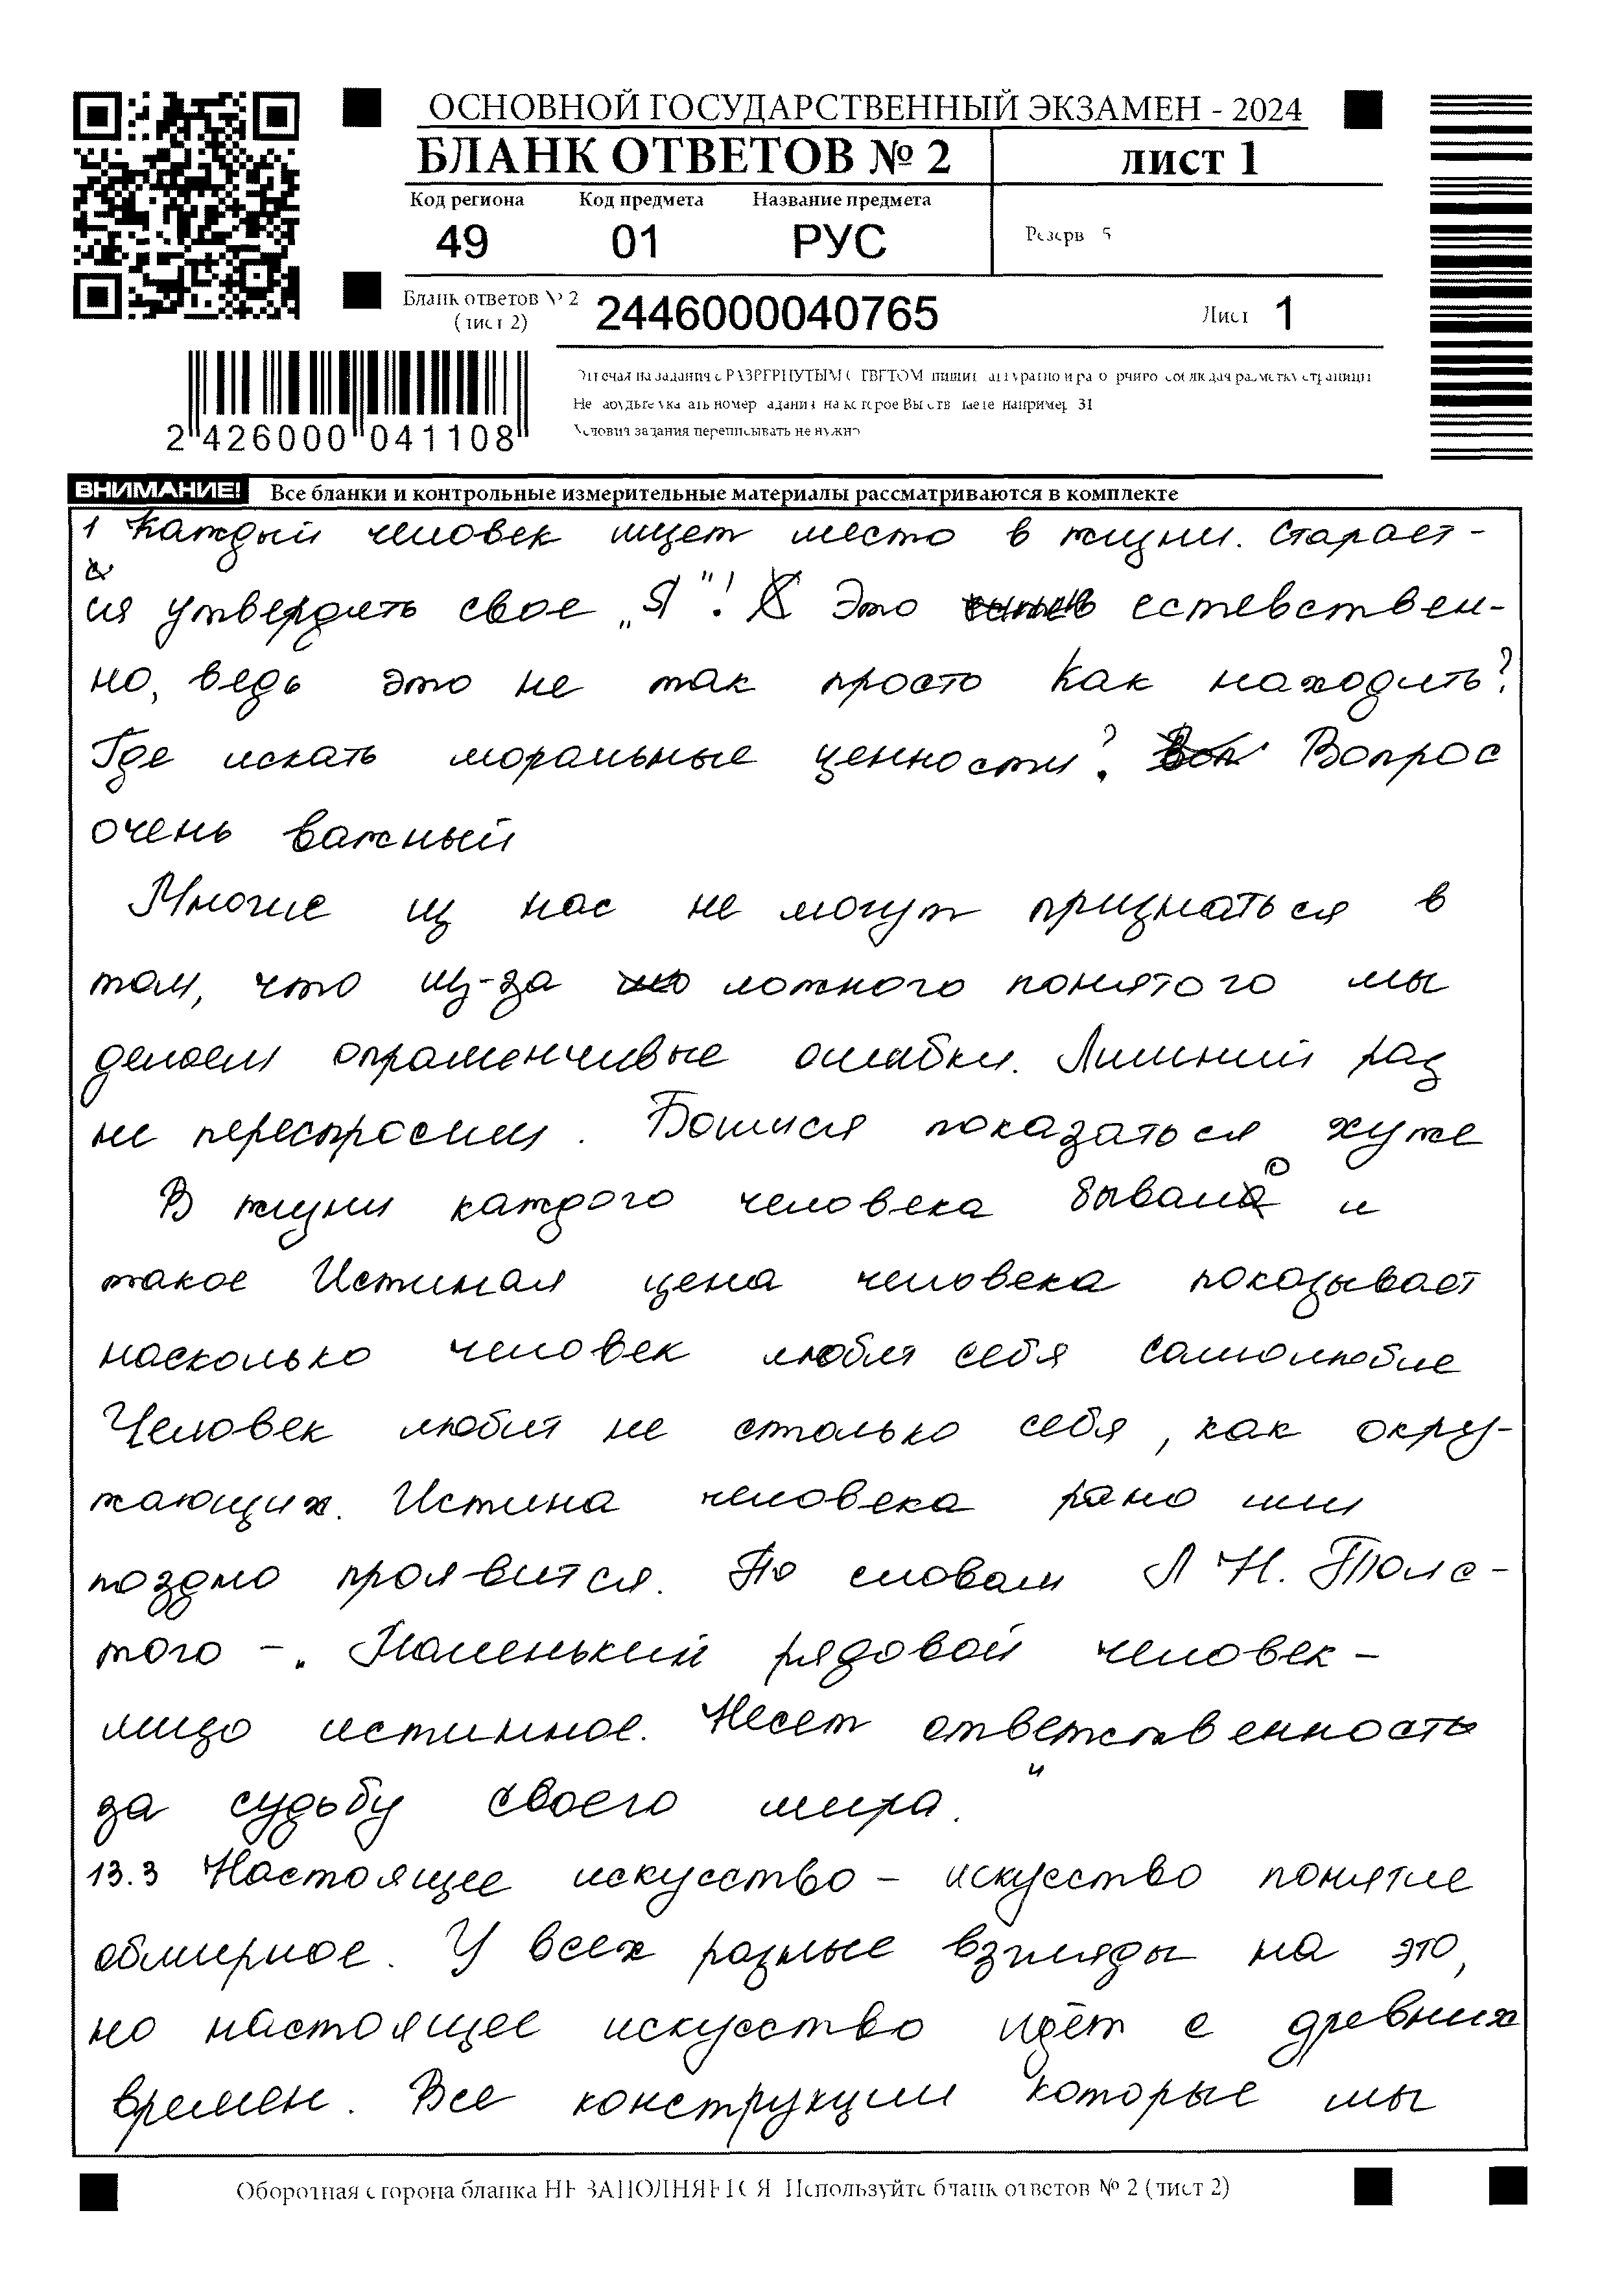 ОСНОВНОЙ ГОСУДАРСТВЕННЫЙ ЭКЗАМЕН - 2024
БЛАНК ОТВЕТОВ № 2
лист 1
Код региона Код предмета Название предмета
49 01 РУС
Резерв 5
Бланк ответов № 2 (лист 2) 2446000040765
Лист 1
2 426000 041108
Не забудьте указать номер задания, на которое Вы отвечаете, например, 31
Условия задания переписывать не нужно
ВНИМАНИЕ! Все бланки и контрольные измерительные материалы рассматриваются в комплекте
1 Каждый человек ищет место в жизни. Старает-
ся утвердить свое „Я"! Это естевствен-
но, ведь это не так просто Как находить?
Где искать моральные ценности? Вопрос
очень важный
Многие из нас не могут признаться в
том, что из-за ложного понятого мы
делаем опраменчивые ошибки. Лишний раз
не переспросим. Боимся показаться хуже
В жизни каждого человека бывало и
такое Истиная цена человека показывает
насколько человек любит себя самолюбие
Человек любит не столько себя, как окру-
жающих. Истина человека рано или
поздно проявится. По словам Л Н. Толс-
того - „ Маленький рядовой человек -
лицо истинное. Несет ответственность
за судьбу своего мира."
13.3 Настоящее искусство - искусство понятие
обширное. У всех разные взгляды на это,
но настоящее искусство идёт с древних
времен. Все конструкции которые мы
Оборотная сторона бланка НЕ ЗАПОЛНЯЕТСЯ. Используйте бланк ответов № 2 (лист 2)